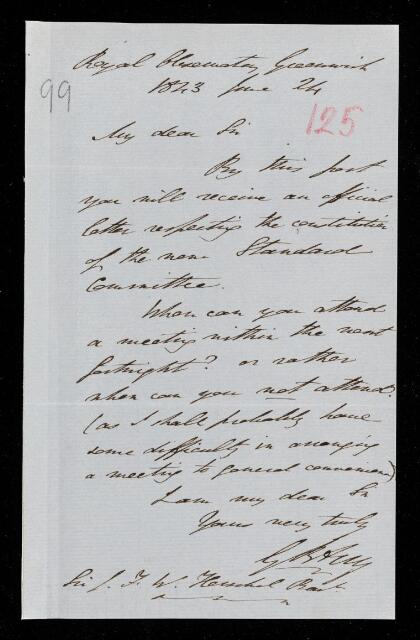 Royal Observatory Greenwich
1843 June 24
99
125
My dear Sir
By this post
you will receive an official
letter respecting the constitution
of the new Standard
Committee.
When can you attend
a meeting within the next
fortnight? or rather
when can you not attend?
(as I shall probably have
some difficulty in arranging
a meeting to general convenience)
I am my dear Sir
Yours very truly
G B Airy
Sir J. F. W. Herschel Bart